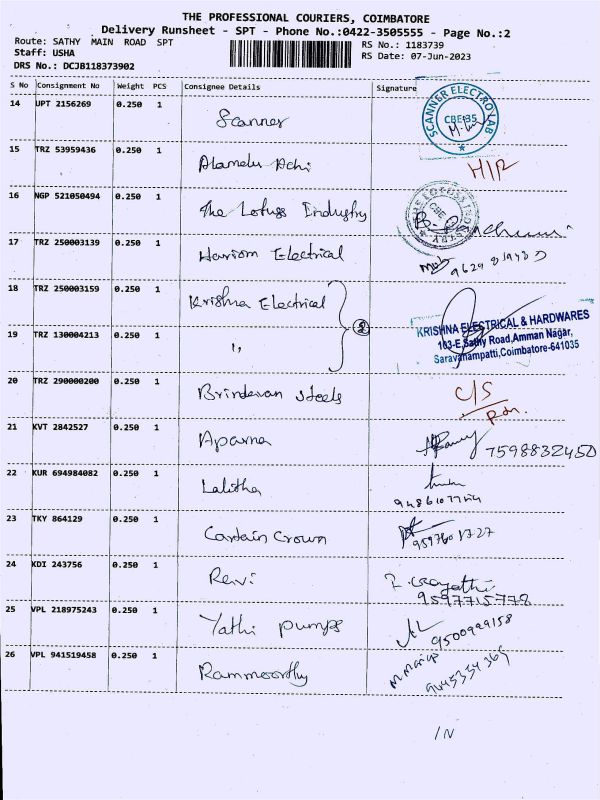 THE PROFESSIONAL COURIERS, COIMBATORE
Delivery Runsheet - SPT - Phone No.:0422-3505555 - Page No.:2
Route: SATHY MAIN ROAD SPT
RS No.: 1183739
Staff: USHA
RS Date: 07-Jun-2023
DRS No.: DCJB118373902
S No Consignment No Weight PCS Consignee Details Signature
14 UPT 2156269 0.250 1 Scanner
SCANNER ELECTRO LAB
CBE-35
15 TRZ 53959436 0.250 1 Alamelu Achi H/R
16 NGP 521050494 0.250 1 The Lotuss Industry
17 TRZ 250003139 0.250 1 Hariom Electrical
18 TRZ 250003159 0.250 1 Krishna Electrical
2
KRISHNA ELECTRICAL & HARDWARES
163-E, Sathy Road, Amman Nagar,
Saravanampatti, Coimbatore-641035
19 TRZ 130004213 0.250 1 "
20 TRZ 290000200 0.250 1 Brindavan Steels C/S
21 KVT 2842527 0.250 1 Aparna 7598832450
22 KUR 694984082 0.250 1 Lalitha
23 TKY 864129 0.250 1 Captain Crown
24 KDI 243756 0.250 1 Revi
9597715778
25 VPL 218975243 0.250 1 Yathi pumps 9500999158
26 VPL 941519458 0.250 1 Rammoorthy 9645354369
IN